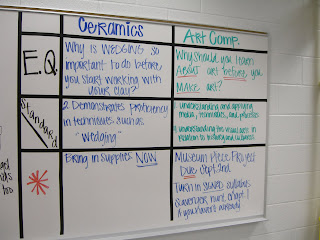 Ceramics
Art Comp.
E.Q.
Why is WEDGING so
important to do before
you start working with
your clay?
Why should you learn
ABOUT art before you
MAKE art?
Standard
2 Demonstrates Proficiency
in techniques such as
"wedging"
1 understanding and applying
media, techniques, and processes
4 understanding the visual arts in
relation to history and cultures
Bring in supplies NOW
Museum Piece Project
Due Sept. 2nd
Turn in signed syllabus
Scavenger hunt, chapt. 1
if you haven't already!
too